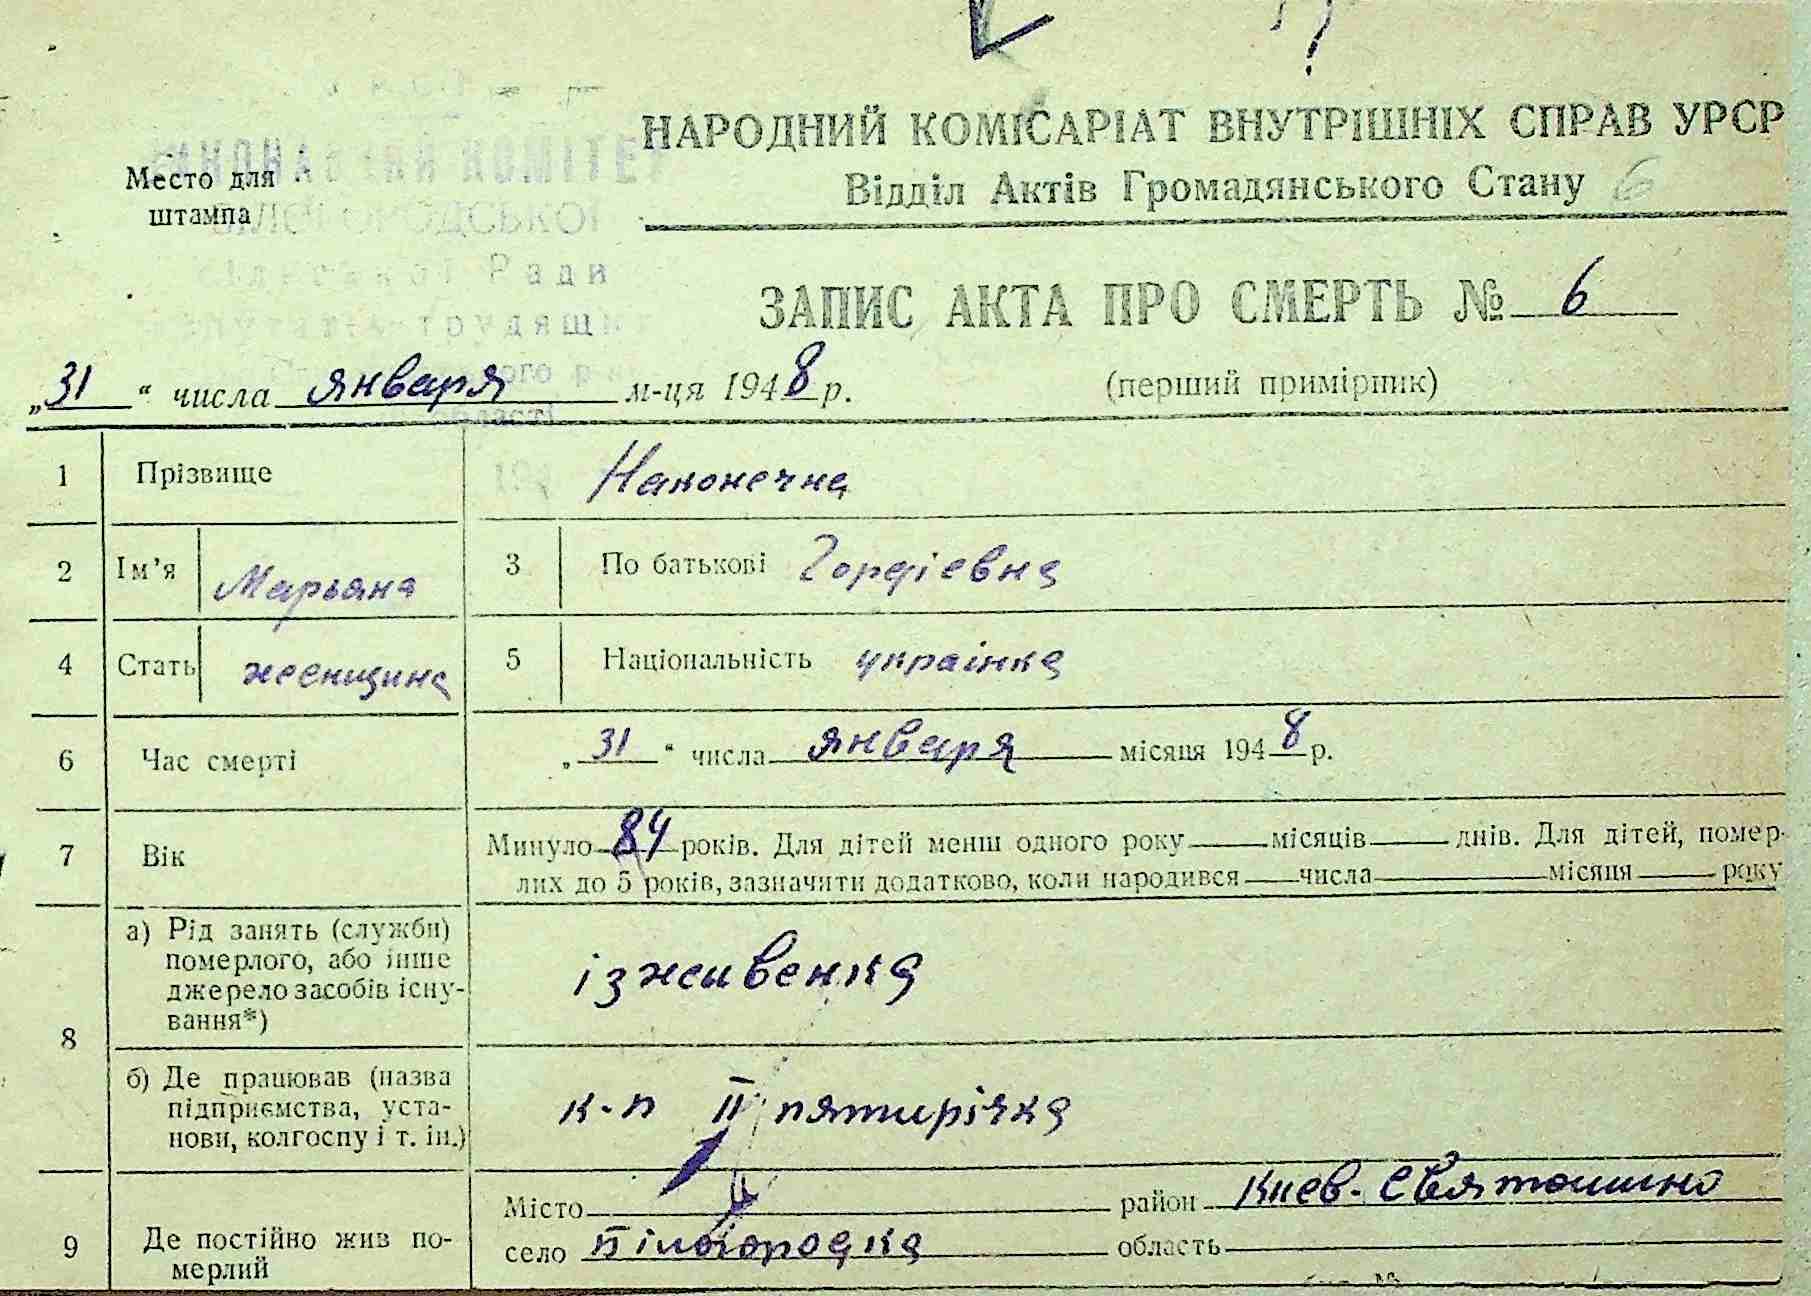 НАРОДНИЙ КОМІСАРІАТ ВНУТРІШНІХ СПРАВ УРСР
Відділ Актів Громадянського Стану 6
Место для
штампа
КОМІТЕТ
БІЛОГОРОДСЬКОЇ
Ради
трудящих
області
194
ЗАПИС АКТА ПРО СМЕРТЬ № 6
„31“ числа января м-ця 1948 р.
(перший примірник)
1 Прізвище Наконечна
2 Ім’я Марьяна 3 По батькові Гордіевна
4 Стать женщина 5 Національність украінка
6 Час смерті „31“ числа января місяця 1948 р.
7 Вік Минуло 84 років. Для дітей менш одного року місяців днів. Для дітей, помер-
лих до 5 років, зазначити додатково, коли народився числа місяця року
8 а) Рід занять (служби)
померлого, або інше
джерело засобів існу-
вання*)
ізживенка
б) Де працював (назва
підприємства, уста-
нови, колгоспу і т. ін.)
к-п II пятирічка
9 Де постійно жив по-
мерлий
Місто район Киев-Святошино
село Білогородка область